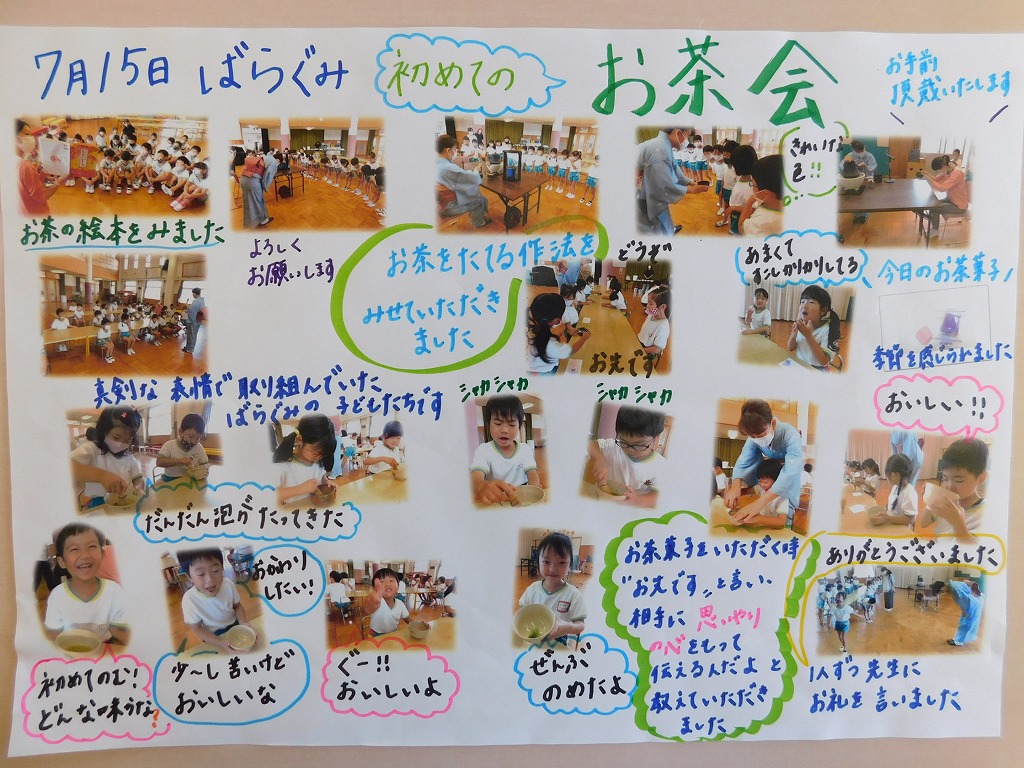 7月15日 ばらぐみ 初めての お茶会
お手前
頂戴いたします
きれいな
色!!
お茶の絵本をみました
よろしく
お願いします
お茶をたてる作法を
みせていただき
ました
どうぞ
お先です
あまくて
すこしかりかりしてる
今日のお茶菓子
季節を感じられました
真剣な 表情で 取り組んでいた
ばらぐみの 子どもたちです
シャカ シャカ
シャカ シャカ
おいしい!!
だんだん泡がたってきた
おかわり
したい!
初めてのむ!
どんな味かな?
少〜し 苦いけど
おいしいな
ぐー!!
おいしいよ
ぜんぶ
のめたよ
お茶菓子をいただく時
"お先です"と言い、
相手に 思いやり
の心をもって
伝えるんだよ と
教えていただき
ました
ありがとうございました
1人ずつ 先生に
お礼を言いました